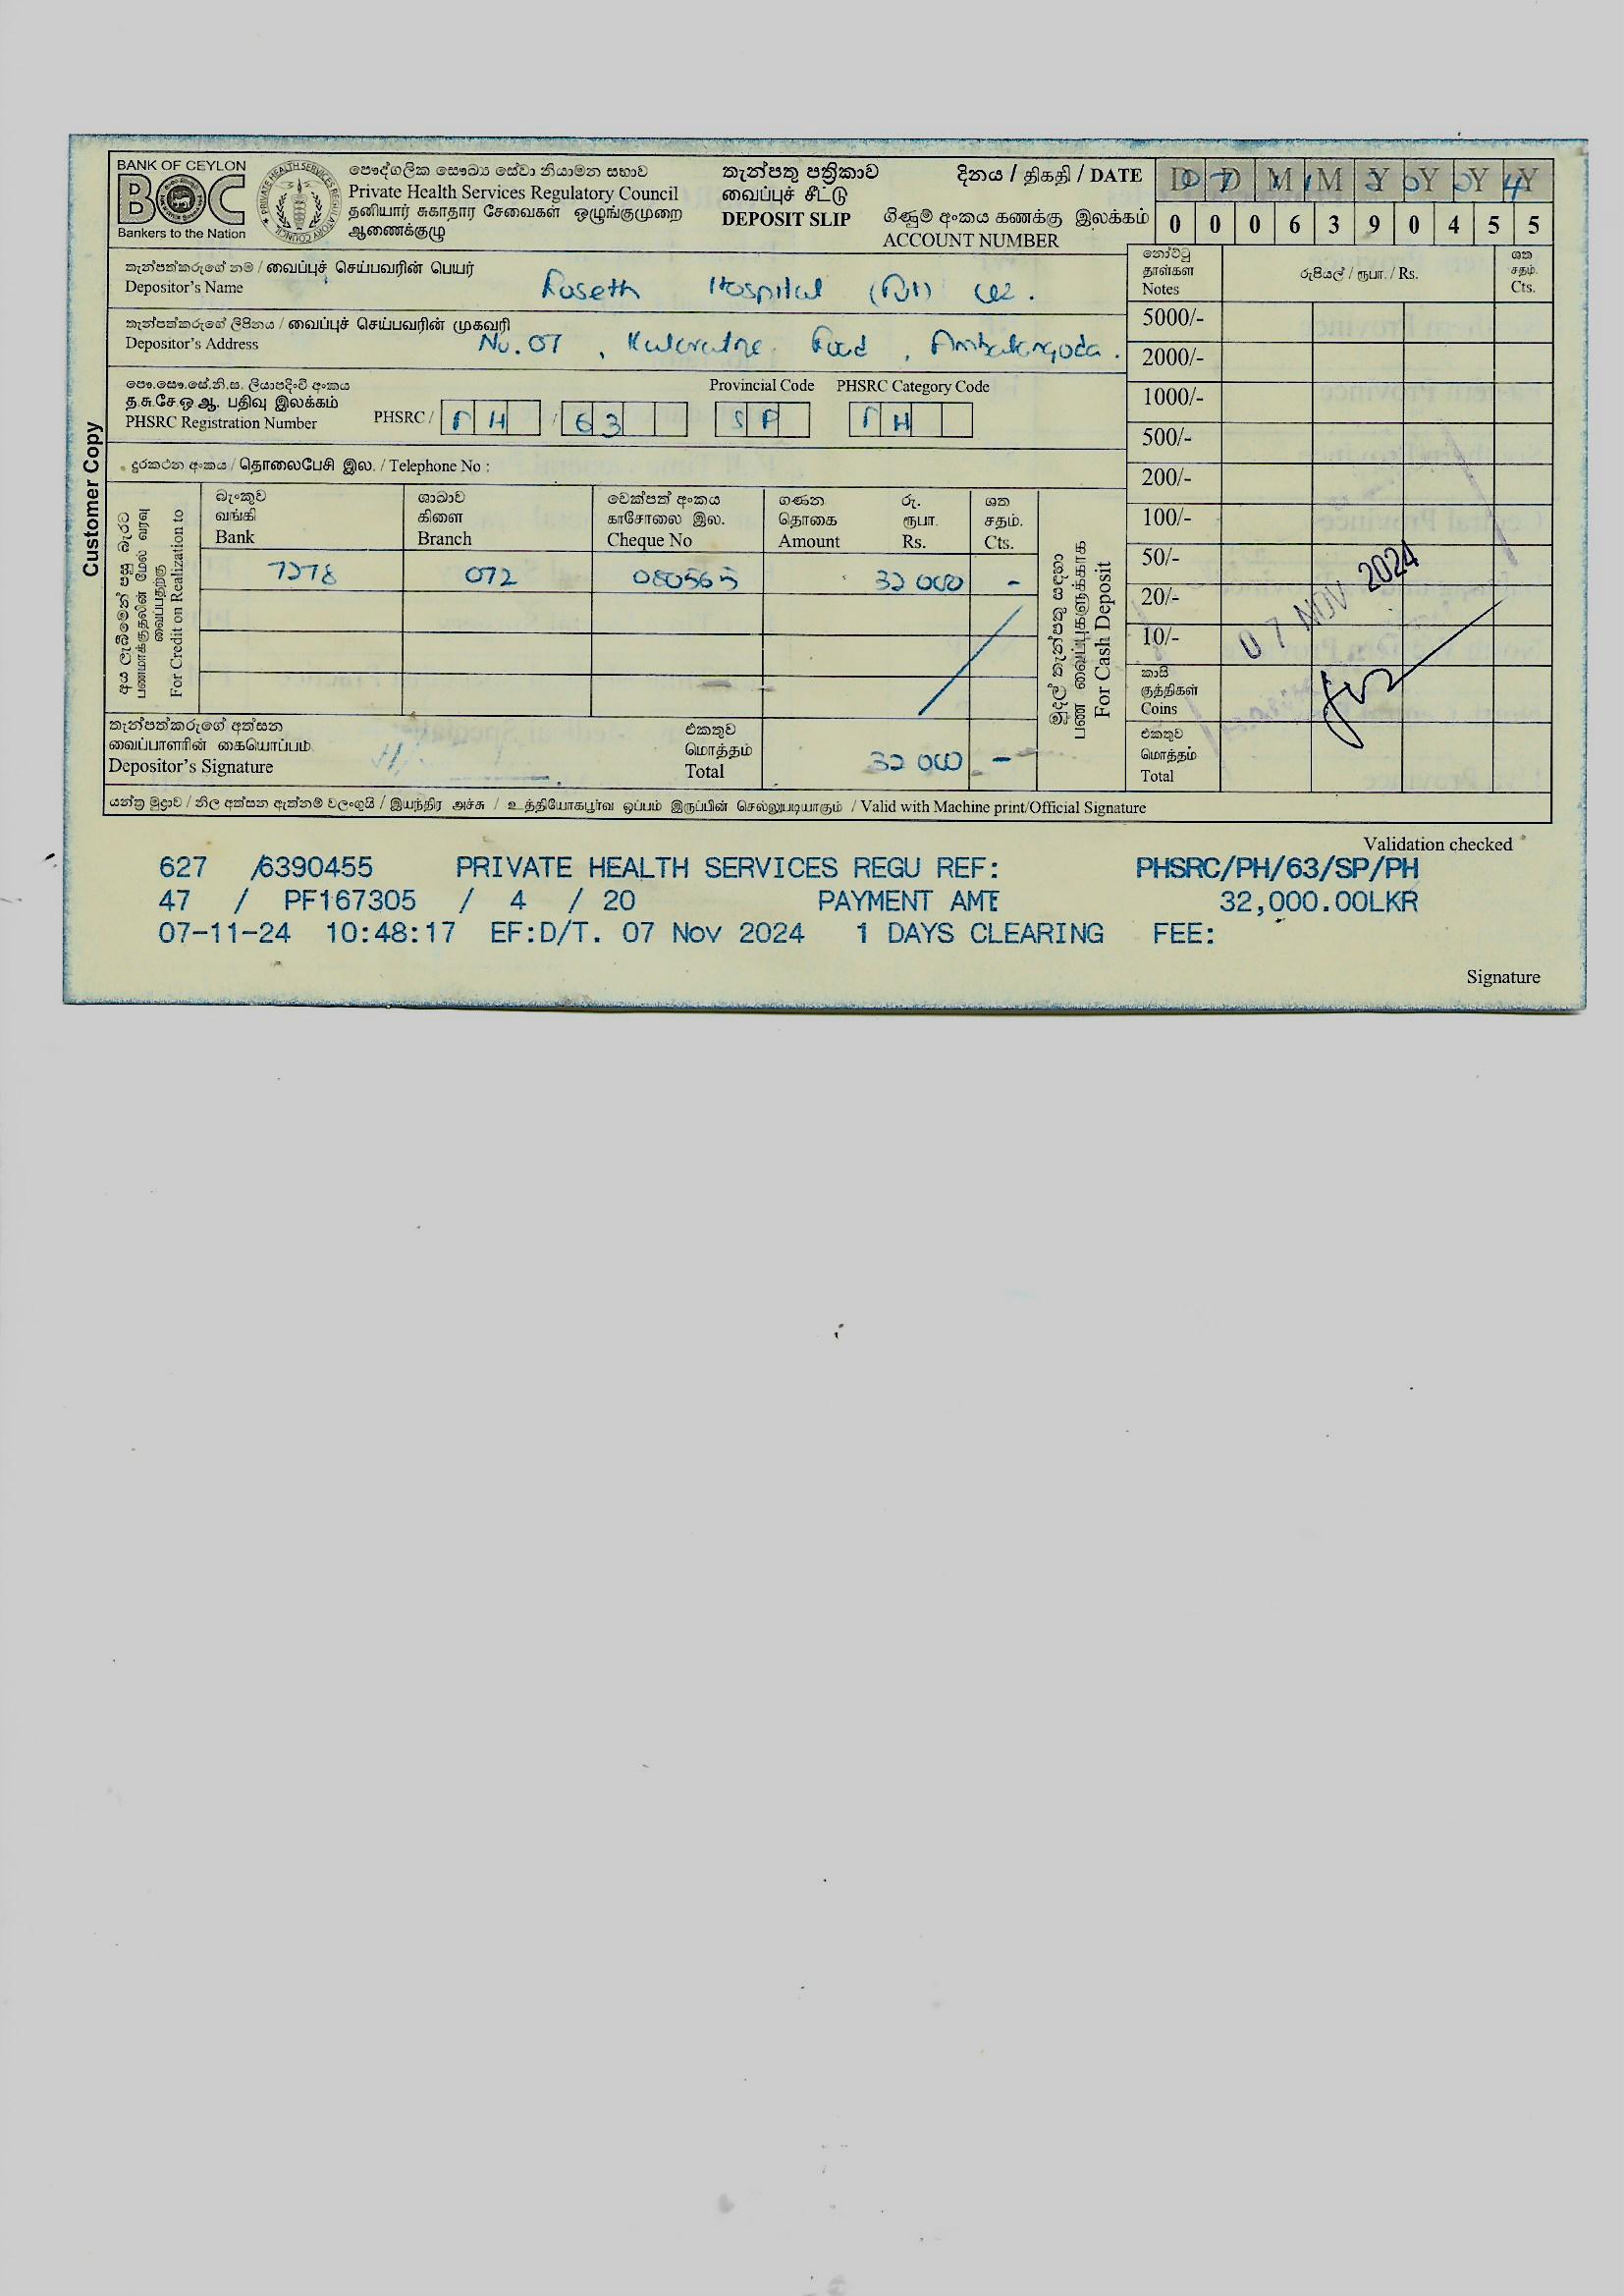 BANK OF CEYLON
BOC
Bankers to the Nation
PRIVATE HEALTH SERVICES REGULATORY COUNCIL
පෞද්ගලික සෞඛ්‍ය සේවා නියාමන සභාව
Private Health Services Regulatory Council
தனியார் சுகாதார சேவைகள் ஒழுங்குமுறை
ஆணைக்குழு
තැන්පතු පත්‍රිකාව
வைப்புச் சீட்டு
DEPOSIT SLIP
දිනය / திகதி / DATE D D M M Y Y Y Y
ගිණුම් අංකය கணக்கு இலக்கம்
ACCOUNT NUMBER
0 0 0 6 3 9 0 4 5 5
Customer Copy
තැන්පත්කරුගේ නම / வைப்புச் செய்பவரின் பெயர்
Depositor's Name
Ruseth Hospital (Pvt)
තැන්පත්කරුගේ ලිපිනය / வைப்புச் செய்பவரின் முகவரி
Depositor's Address
No. 07, Road, Ambalangoda.
පෞ.සෞ.සේ.නි.ස. ලියාපදිංචි අංකය
த.சு.சே.ஒ.ஆ. பதிவு இலக்கம்
PHSRC Registration Number
PHSRC / PH / 63
Provincial Code
SP
PHSRC Category Code
PH
දුරකථන අංකය / தொலைபேசி இல. / Telephone No :
අය ලැබීමෙන් පසු බැරට
பணமாக்குதலின் மேல் வரவு
வைப்பதற்கு
For Credit on Realization to
බැංකුව
வங்கி
Bank
ශාඛාව
கிளை
Branch
චෙක්පත් අංකය
காசோலை இல.
Cheque No
ගණන
தொகை
Amount
රු.
ரூபா.
Rs.
ශත
சதம்.
Cts.
7278 072 080565 32 000 -
තැන්පත්කරුගේ අත්සන
வைப்பாளரின் கையொப்பம்
Depositor's Signature
එකතුව
மொத்தம்
Total
32 000 -
මුදල් තැන්පතු සඳහා
பண வைப்புகளுக்காக
For Cash Deposit
නෝට්ටු
தாள்கள்
Notes
රුපියල් / ரூபா. / Rs.
ශත
சதம்.
Cts.
5000/-
2000/-
1000/-
500/-
200/-
100/-
50/-
20/-
10/-
කාසි
குத்திகள்
Coins
එකතුව
மொத்தம்
Total
07 NOV 2024
යන්ත්‍ර මුද්‍රාව / නිල අත්සන ඇත්නම් වලංගුයි / இயந்திர அச்சு / உத்தியோகபூர்வ ஒப்பம் இருப்பின் செல்லுபடியாகும் / Valid with Machine print/Official Signature
Validation checked
627 /6390455 PRIVATE HEALTH SERVICES REGU REF: PHSRC/PH/63/SP/PH
47 / PF167305 / 4 / 20 PAYMENT AMT 32,000.00LKR
07-11-24 10:48:17 EF:D/T. 07 Nov 2024 1 DAYS CLEARING FEE:
Signature